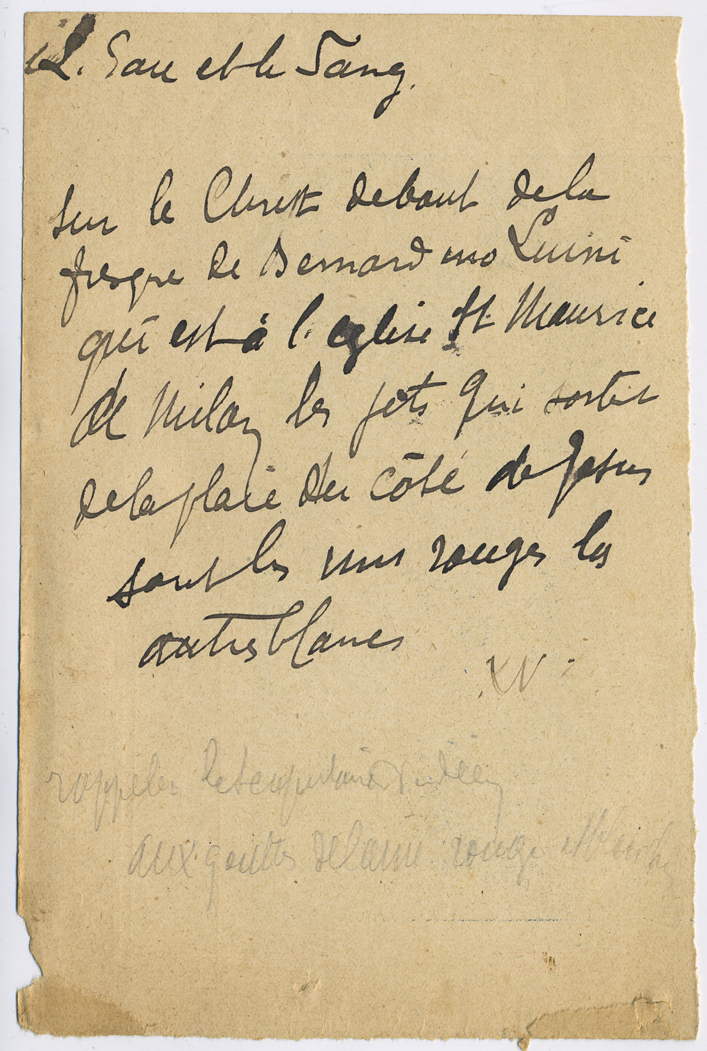 L'Eau et le Sang.
Sur le Christ debout de la
fresque de Bernardino Luini
qui est à l'église St Maurice
de Milan les jets qui sortent
de la plaie du côté de Jesus
sont les uns rouges les
autres blancs
XV
rappeler le scapulaire
aux gouttes de laine rouge et